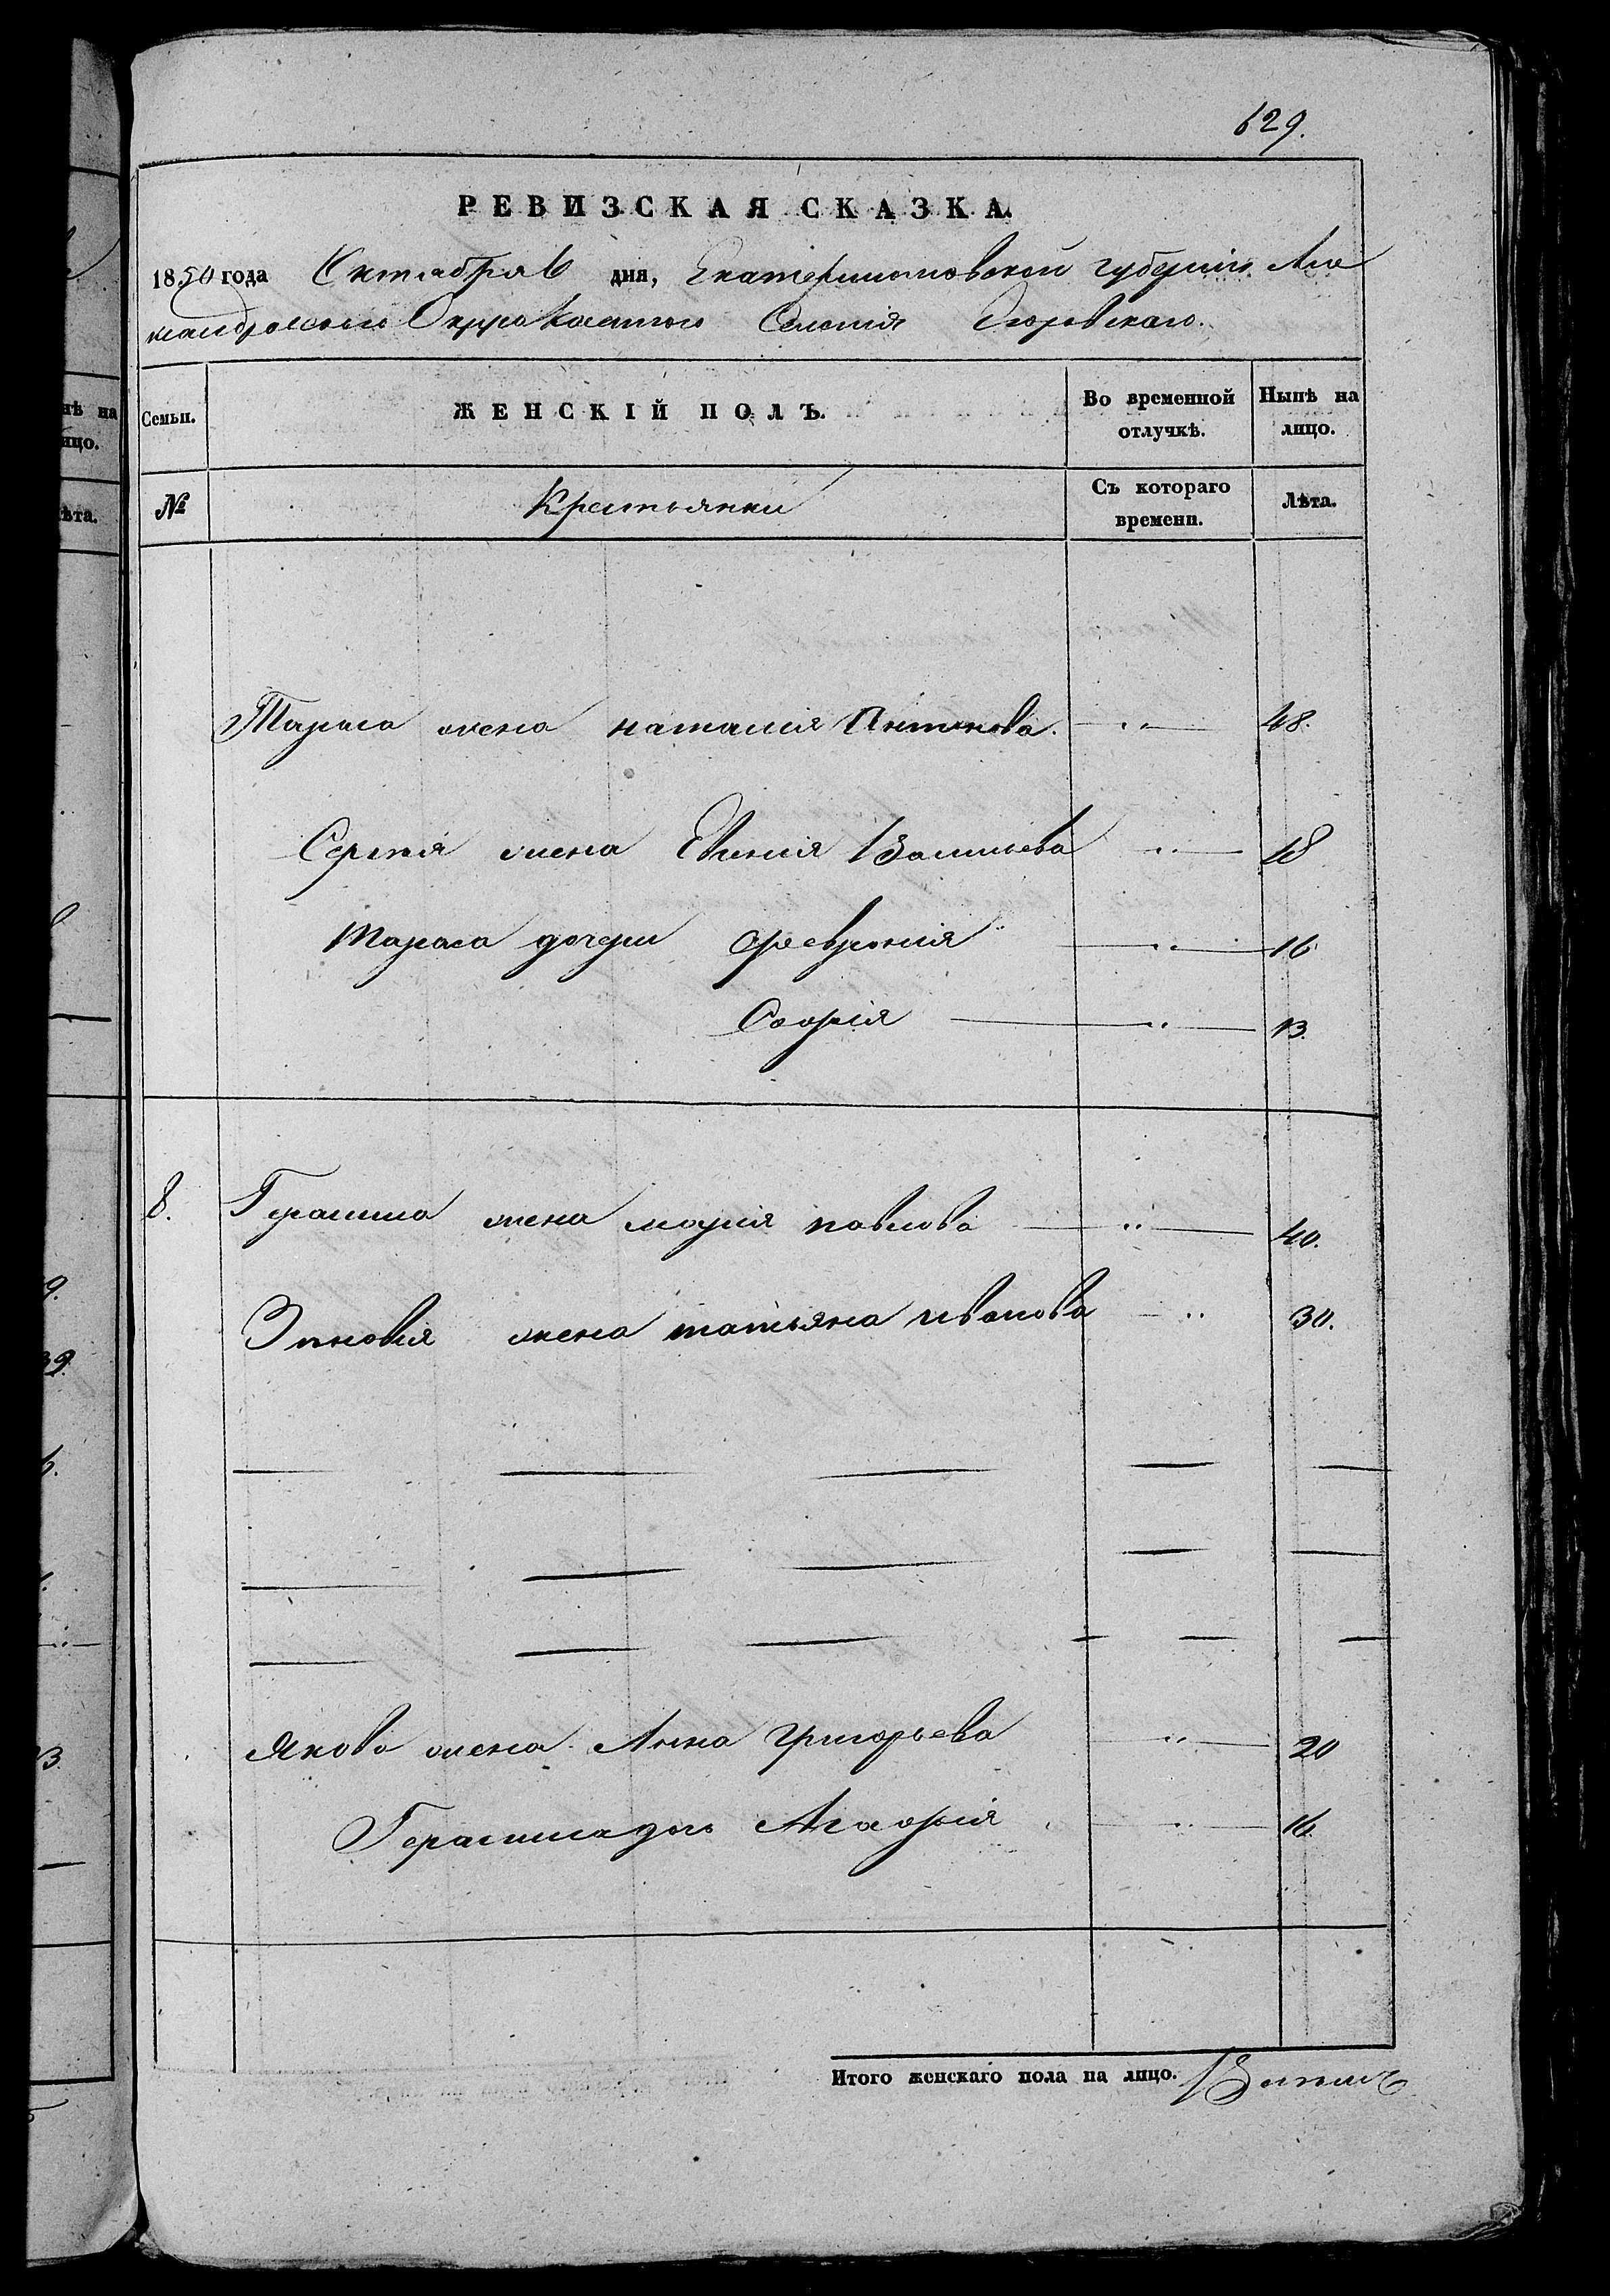 629.
РЕВИЗСКАЯ СКАЗКА.
1850 года Октября 6 дня, Екатеринославской губерніи Але
ксандровскаго Округа Селенія Егоровскаго.
Семьи. ЖЕНСКІЙ ПОЛЪ. Во временной отлучкѣ. Нынѣ на лицо.
№ Крестьянки Съ котораго времени. Лѣта.
Тараса жена наталія Антонова. — „ — 48.
Сергія жена Евгенія Васильева „ — 18
Тараса дочери Феврония — „ — 16
Софія — „ — 13.
8. Герасима жена марія павлова — „ — 40.
Зиновія жена татьяна иванова — „ 30.
— — — — —
— — — — —
— — — — — —
Якова жена Анна Григорьева „ — 20
Герасима дочь Агафія — „ — 16.
Итого женскаго пола на лицо.